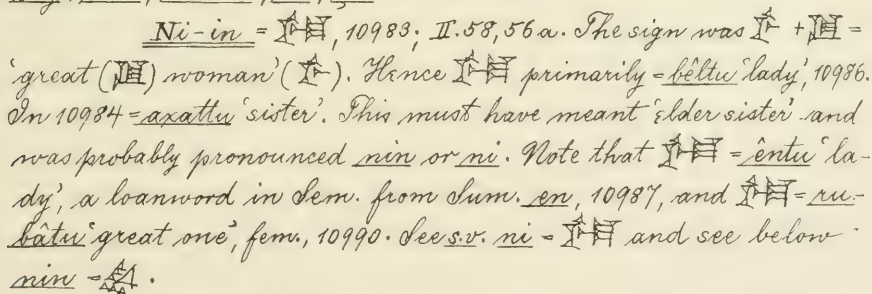 Ni-in = 𒊩𒌆, 10983; II. 58, 56 a. The sign was 𒊩 + 𒌆 =
'great (𒌆) woman' (𒊩). Hence 𒊩𒌆 primarily = bêltu 'lady', 10986.
In 10984 = axattu 'sister'. This must have meant 'elder sister' and
was probably pronounced nin or ni. Note that 𒊩𒌆 = êntu 'la-
dy', a loanword in Sem. from Sum. en, 10987, and 𒊩𒌆 = ru-
bâtu 'great one', fem., 10990. See s.v. ni = 𒊩𒌆 and see below
nin =